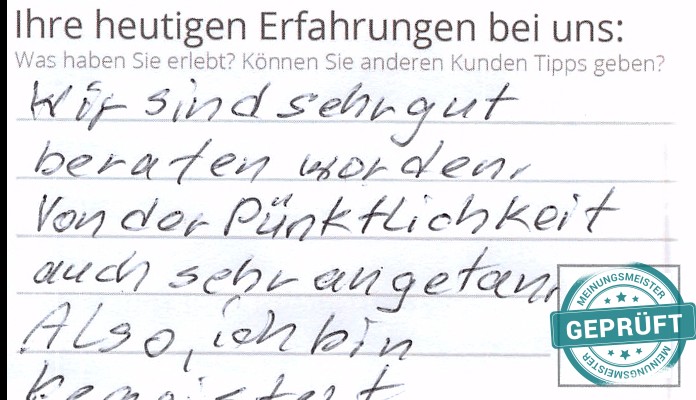 Ihre heutigen Erfahrungen bei uns:
Was haben Sie erlebt? Können Sie anderen Kunden Tipps geben?
Wir sind sehr gut
beraten worden,
Von der Pünktlichkeit
auch sehr angetan
Also, ich bin
MEINUNGSMEISTER
GEPRÜFT
MEINUNGSMEISTER